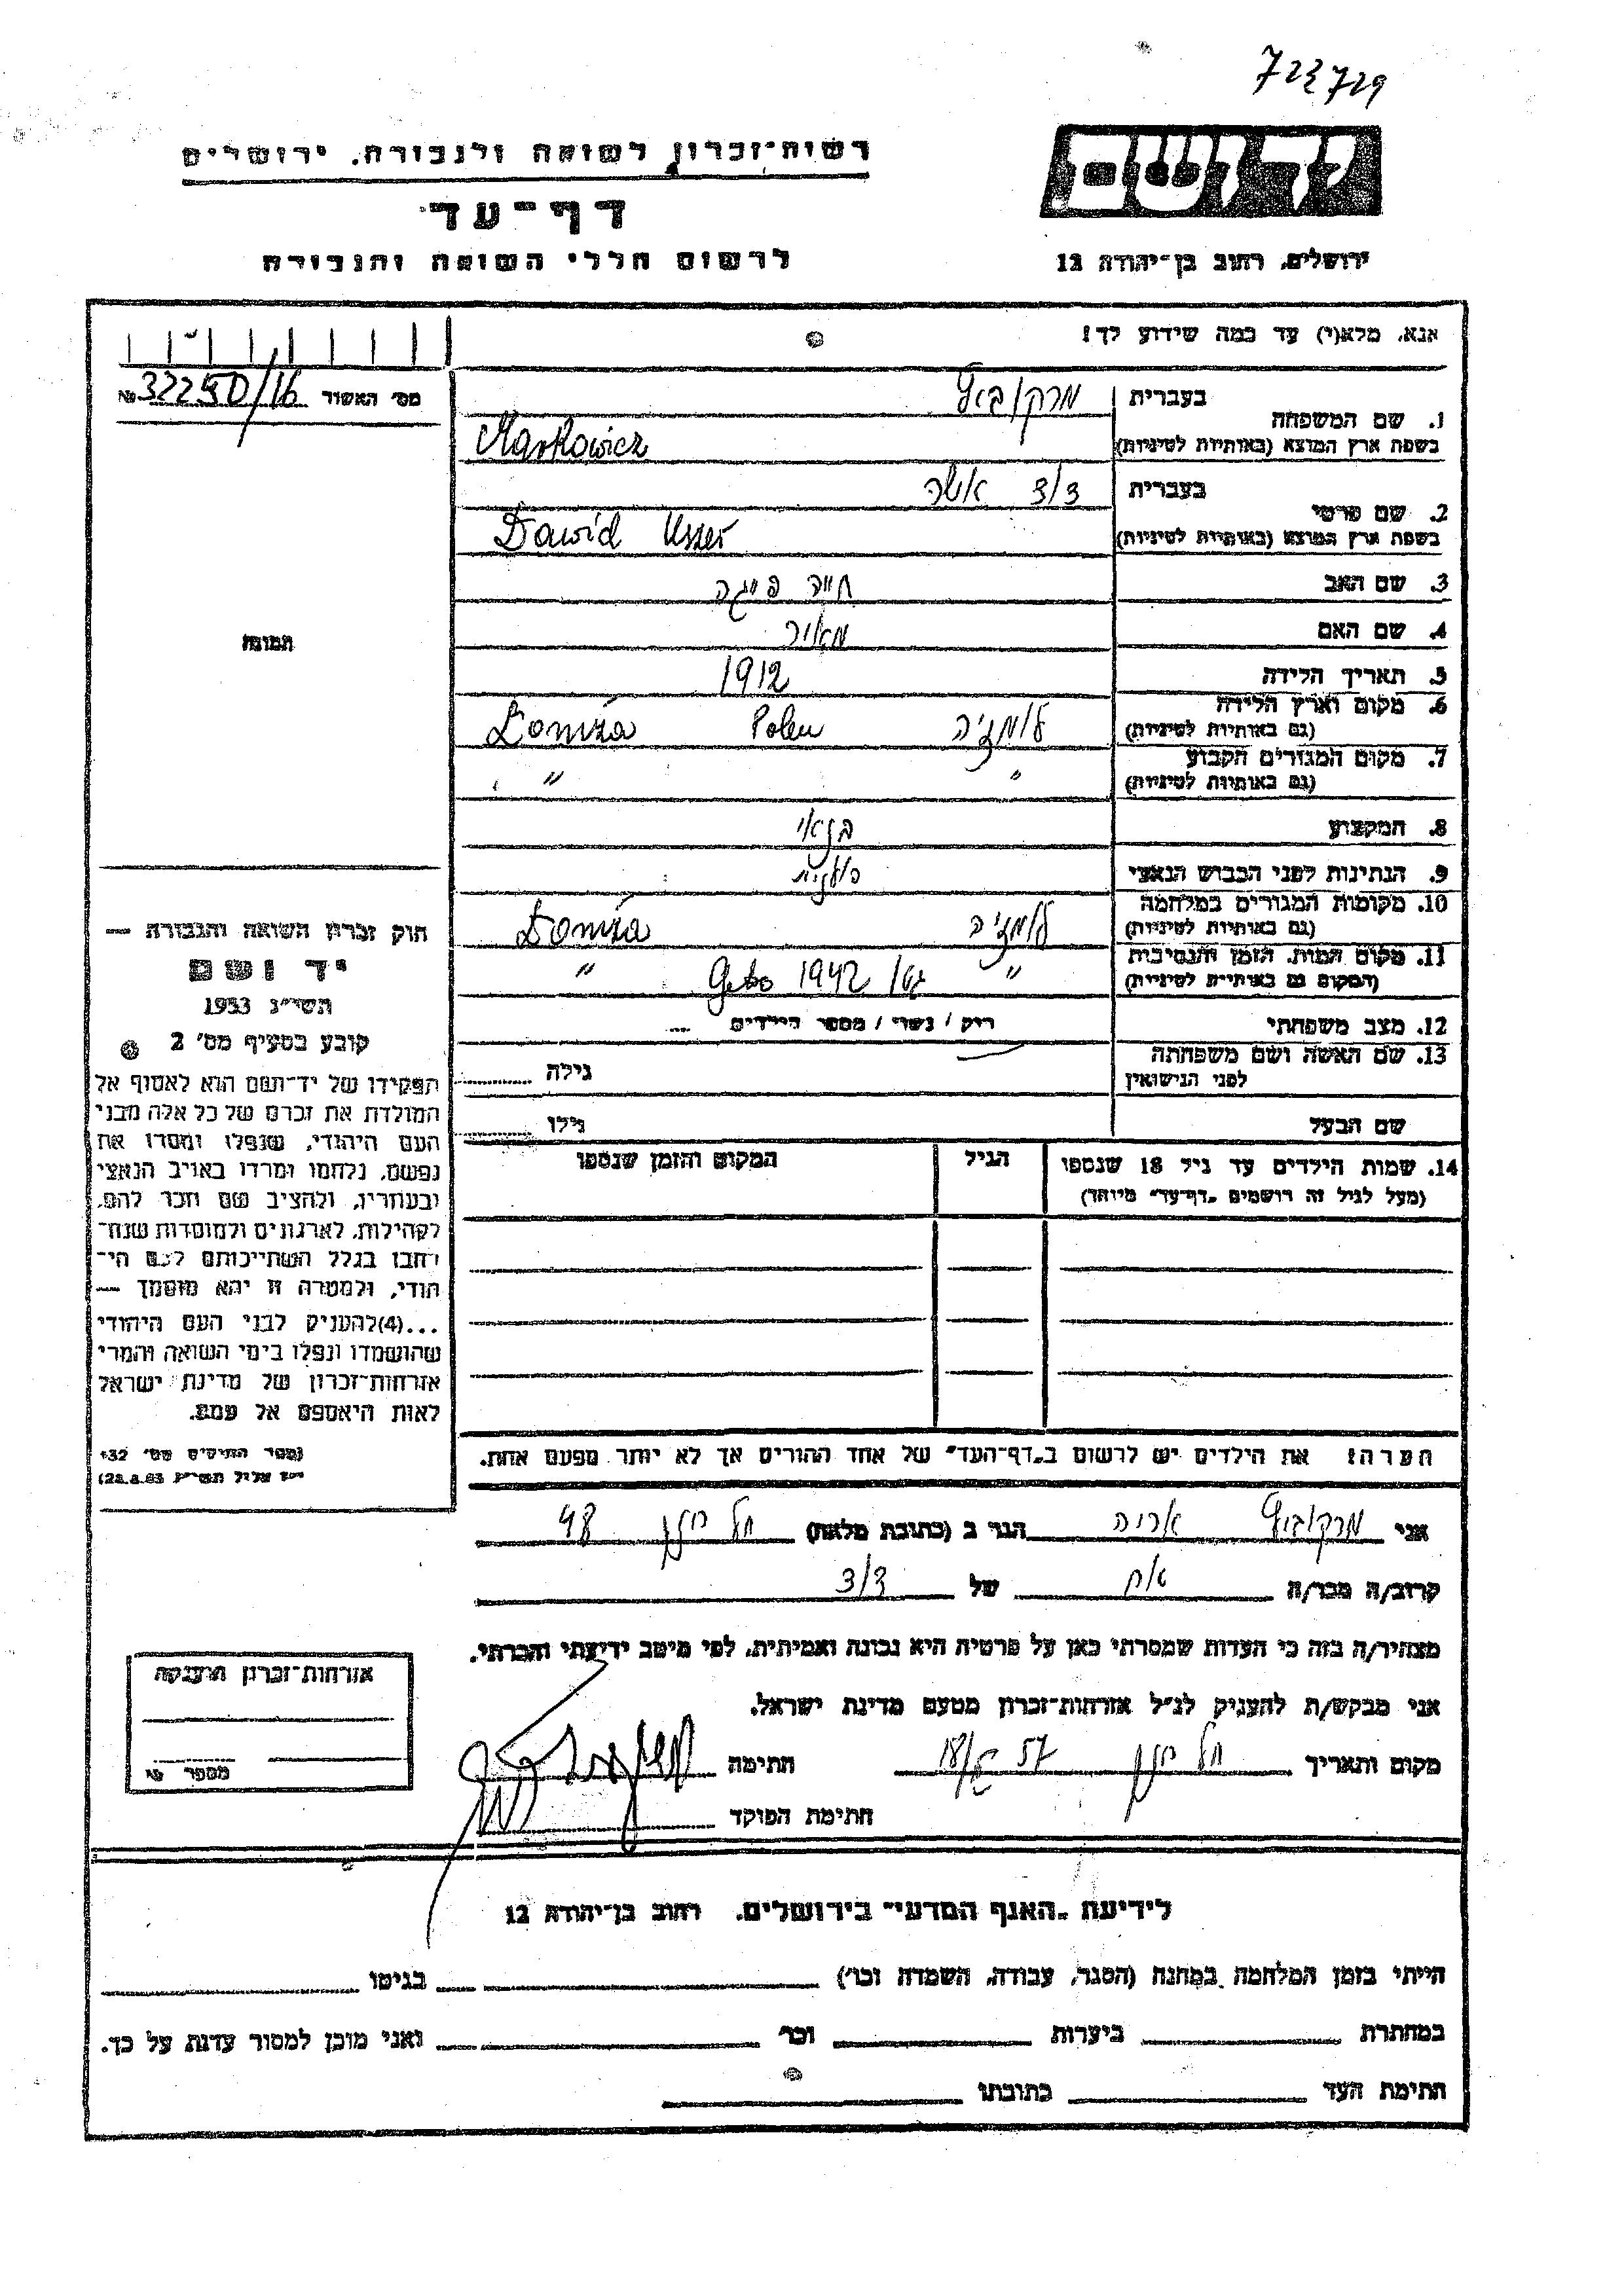 723729
רשות-זכרון לשואה ולגבורה, ירושלים
יד ושם
דף-עד
לרשום חללי השואה והגבורה
ירושלים, רחוב בן-יהודה 12
אנא, מלא(י) עד כמה שידוע לך!
מס' האשור 32250/16 №
1. שם המשפחה
בעברית מרקוביץ
בשפת ארץ המוצא (באותיות לטיניות) Markowicz
2. שם פרטי
בעברית דוד אושר
בשפת ארץ המוצא (באותיות לטיניות) Dawid Uszer
3. שם האב חיה פייגה
4. שם האם מאיר
תמונה
5. תאריך הלידה 1912
6. מקום וארץ הלידה לומז'ה Polen Łomża
(גם באותיות לטיניות)
7. מקום המגורים הקבוע " "
(גם באותיות לטיניות)
8. המקצוע בנאי
9. הנתינות לפני הכבוש הנאצי פולנית
10. מקומות המגורים במלחמה לומז'ה Łomża
(גם באותיות לטיניות)
11. מקום המות, הזמן והנסיבות " גטו 1942 Getto "
(המקום גם באותיות לטיניות)
12. מצב משפחתי רוק / נשוי / מספר הילדים ...
13. שם האשה ושם משפחתה
לפני הנישואין גילה
שם הבעל גילו
14. שמות הילדים עד גיל 18 שנספו הגיל המקום והזמן שנספו
(מעל לגיל זה רושמים "דף-עד" מיוחד)
חוק זכרון השואה והגבורה —
יד ושם
תשי"ג 1953
קובע בסעיף מס' 2
תפקידו של יד-ושם הוא לאסוף אל
המולדת את זכרם של כל אלה מבני
העם היהודי, שנפלו ומסרו את
נפשם, נלחמו ומרדו באויב הנאצי
ובעוזריו, ולהציב שם וזכר להם,
לקהילות, לארגונים ולמוסדות שנח-
רבו בגלל השתייכותם לעם הי-
הודי, ולמטרה זו יהא מוסמך —
...(4) להעניק לבני העם היהודי
שהושמדו ונפלו בימי השואה והמרי
אזרחות-זכרון של מדינת ישראל
לאות היאספם אל עמם.
(ספר החוקים מס' 132
הערה: את הילדים יש לרשום ב"דף-העד" של אחד ההורים אך לא יותר מפעם אחת.
אני מרקוביץ אריה הגר ב (כתובת מלאה) 48
קרוב/ה מכר/ה אח של דוד
מצהיר/ה בזה כי העדות שמסרתי כאן על פרטיה היא נכונה ואמיתית, לפי מיטב ידיעתי והכרתי.
אני מבקש/ת להעניק לנ"ל אזרחות-זכרון מטעם מדינת ישראל.
מקום ותאריך 57 חתימה
חתימת הפוקד
אזרחות-זכרון הוענקה
מספר
לידיעת "האגף המדעי" בירושלים, רחוב בן-יהודה 12
הייתי בזמן המלחמה במחנה (הסגר, עבודה, השמדה וכו') בגיטו
במחתרת ביערות וכו' ואני מוכן למסור עדות על כך.
חתימת העד כתובתו